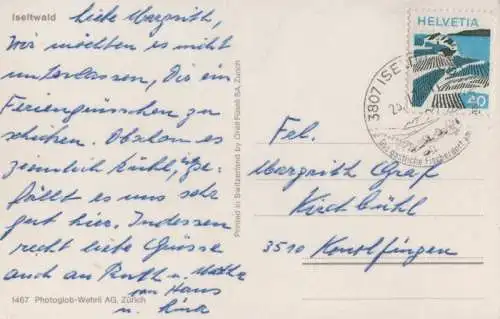 Iseltwald
Liebe Margrith,
Wir möchten es nicht
unterlassen, Dir ein
Feriengrüsschen zu
schicken. Obschon es
ziemlich kühl, ge-
fällt es uns sehr
gut hier. Indessen
recht liebe Grüsse
auch an Ruth u.
von Hans
u.
1467 Photoglob-Wehrli AG, Zürich
Printed in Switzerland by Orell Füssli SA, Zürich
HELVETIA
20
3807 ISELTWALD
Frl.
Margrith Graf
Kirchbühl
3510 Konolfingen